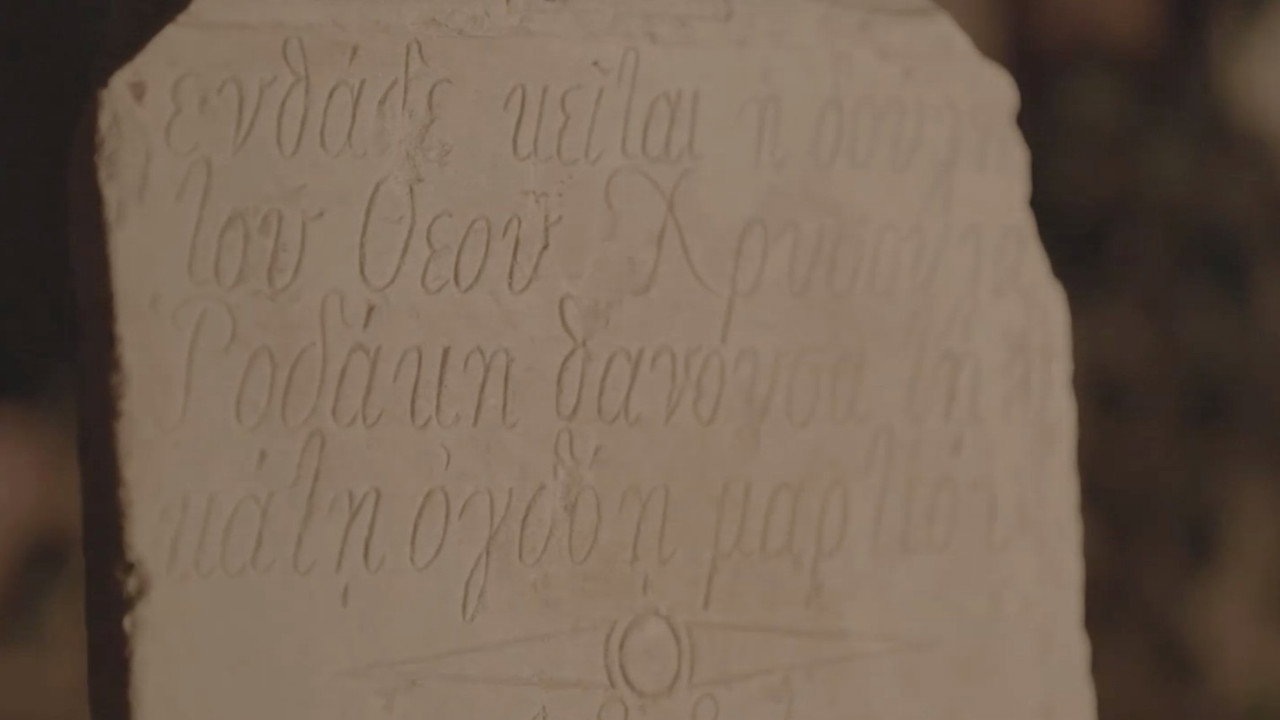 ενθάδε κεῖται ἡ δούλη
τοῦ Θεοῦ Χρυσούλα
Ροδάκη θανοῦσα τῇ
κάτῃ ὀγδόῃ μαρτίου